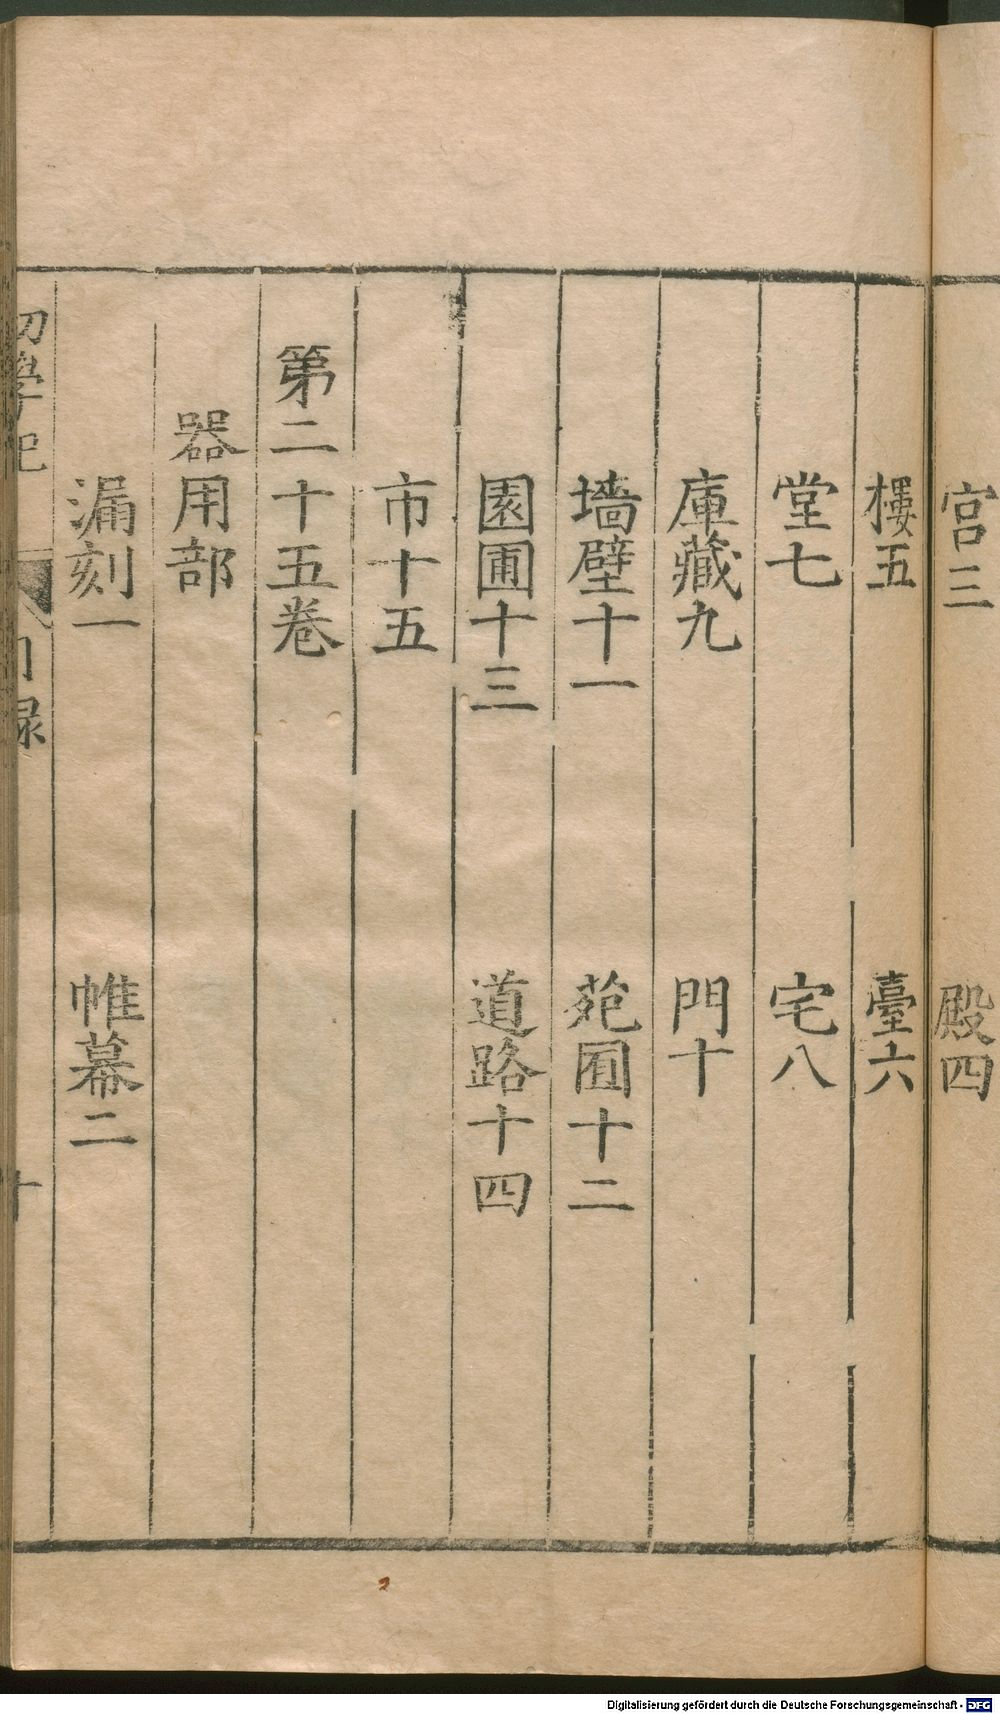 宮三 殿四
樓五 臺六
堂七 宅八
庫藏九 門十
墻壁十一 苑囿十二
園圃十三 道路十四
市十五
第二十五卷
器用部
漏刻一 帷幕二
初學記 目錄 十
Digitalisierung gefördert durch die Deutsche Forschungsgemeinschaft - DFG